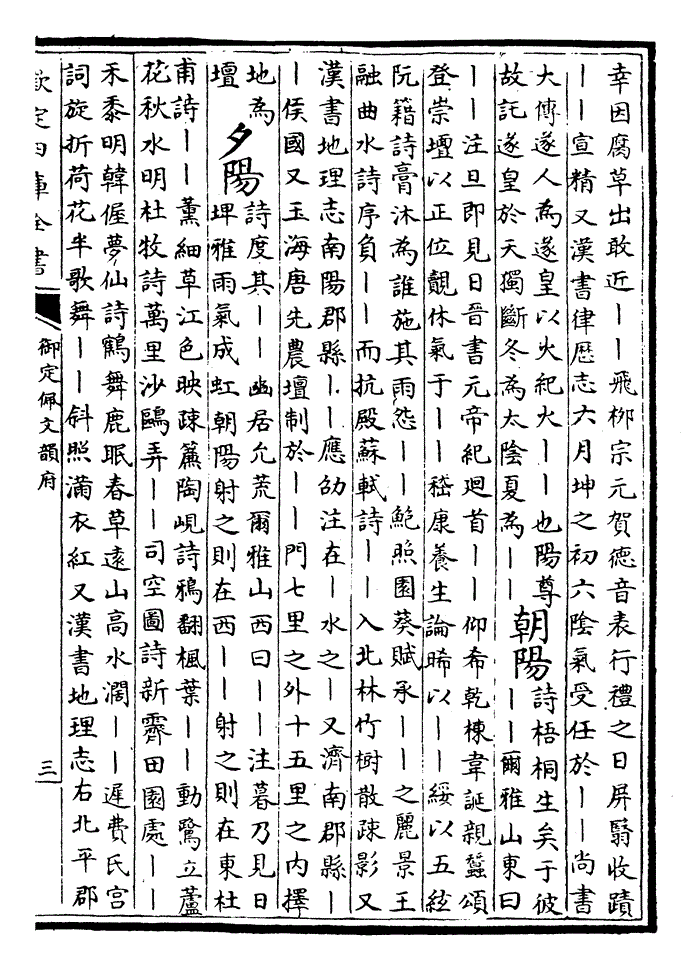 幸因腐草出敢近丨丨飛栁宗元賀徳音表行禮之日屏翳收蹟
丨丨宣精又漢書律厯志六月坤之初六隂氣受任於丨丨尚書
大傳遂人為遂皇以火紀火丨丨也陽尊
故託遂皇於天獨斷冬為太隂夏為丨丨
朝陽
詩梧桐生矣于彼
丨丨爾雅山東曰
丨丨注旦即見日晉書元帝紀廻首丨丨仰希乾棟韋誕親蠶頌
登崇壇以正位覿休氣于丨丨嵇康養生論晞以丨丨綏以五絃
阮籍詩膏沐為誰施其雨怨丨丨鮑照園葵賦承丨丨之麗景王
融曲水詩序負丨丨而抗殿蘇軾詩丨丨入北林竹樹散疎影又
漢書地理志南陽郡縣丨丨應劭注在丨水之丨又濟南郡縣丨
丨侯國又玉海唐先農壇制於丨丨門七里之外十五里之内擇
地為
壇
夕陽
詩度其丨丨豳居允荒爾雅山西曰丨丨注暮乃見日
埤雅雨氣成虹朝陽射之則在西丨丨射之則在東杜
甫詩丨丨薰細草江色映疎簾陶峴詩鴉翻楓葉丨丨動鷺立蘆
花秋水明杜牧詩萬里沙鷗弄丨丨司空圖詩新霽田園處丨丨
禾黍明韓偓夢仙詩鶴舞鹿眠春草遠山高水濶丨丨遲費氏宫
詞旋折荷花半歌舞丨丨斜照滿衣紅又漢書地理志右北平郡
欽定四庫全書
御定佩文韻府
三